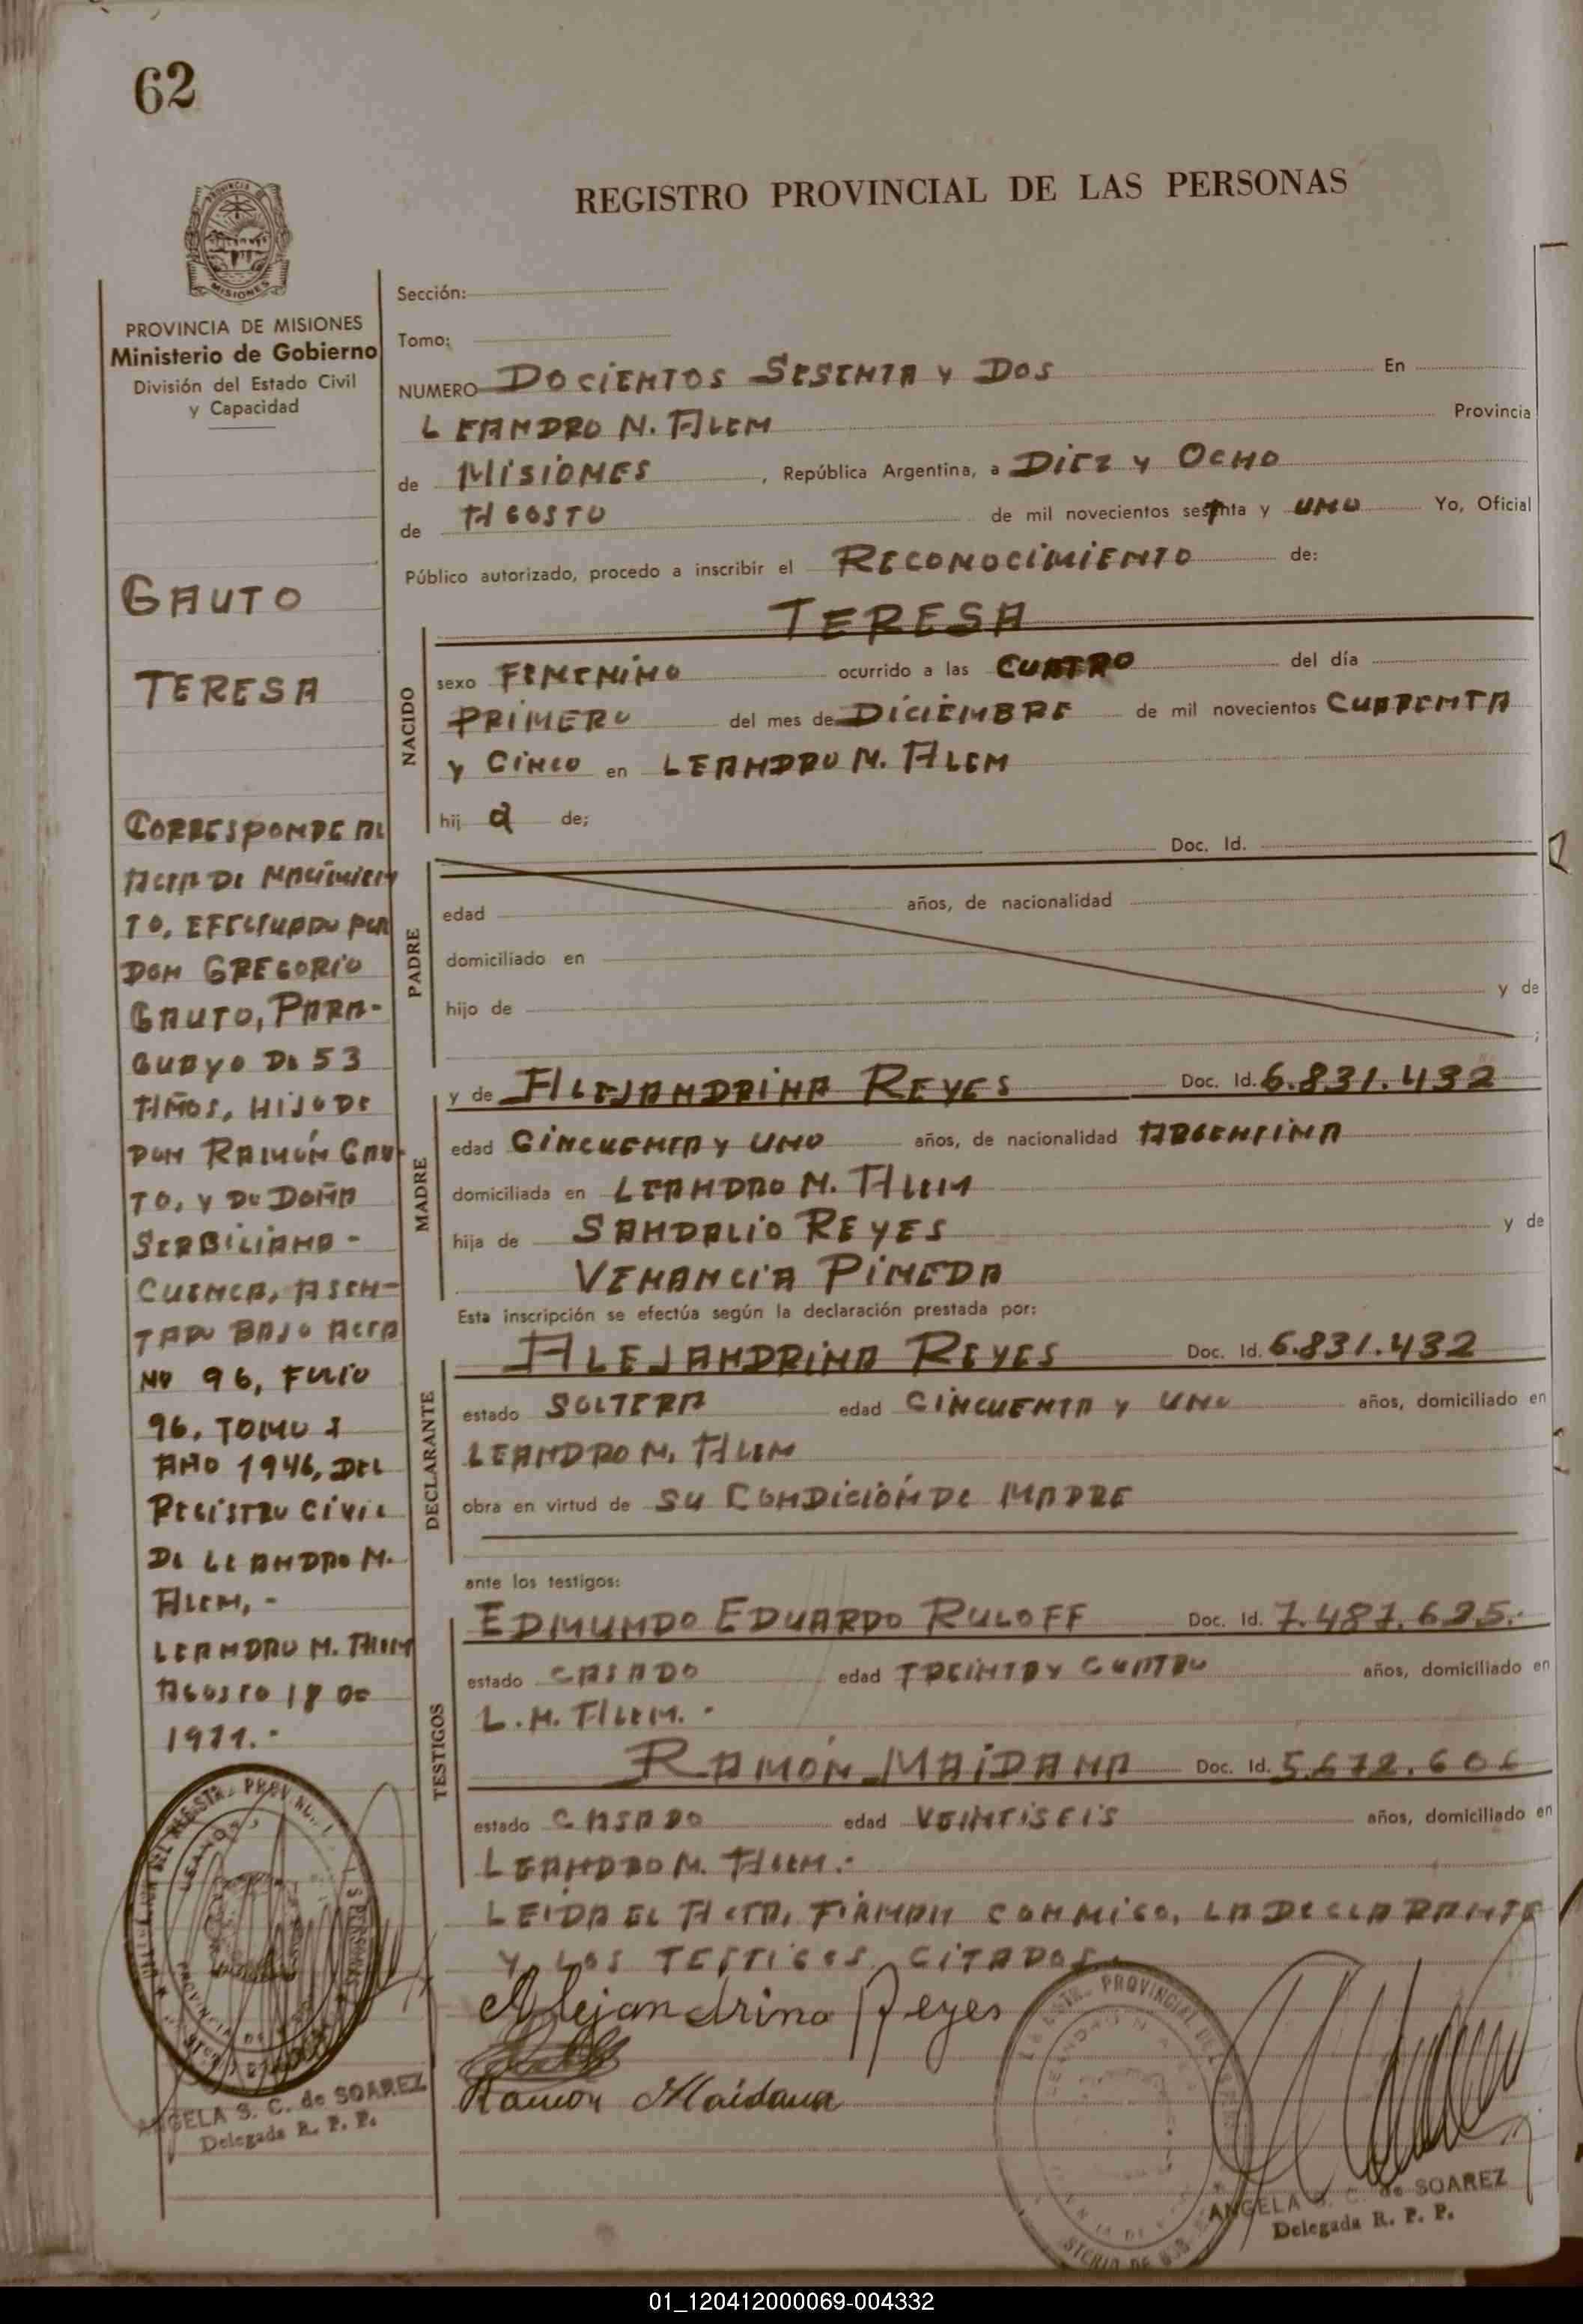 62
REGISTRO PROVINCIAL DE LAS PERSONAS
PROVINCIA
MISIONES
PROVINCIA DE MISIONES
Ministerio de Gobierno
División del Estado Civil
y Capacidad
GAUTO
TERESA
CORRESPONDE AL
ACTA DE NACIMIEN
TO, EFECTUADO POR
DON GREGORIO
GAUTO, PARA-
GUAYO DE 53
AÑOS, HIJO DE
DON RAMÓN GAU-
TO, Y DE DOÑA
SERBILIANA -
CUENCA, ASEN-
TADO BAJO ACTA
Nº 96, FOLIO
96, TOMO I
AÑO 1946, DEL
REGISTRO CIVIL
DE LEANDRO N.
ALEM, -
LEANDRO N. ALEM
AGOSTO 18 DE
1971.-
ANGELA S. C. de SOAREZ
Delegada R. P. P.
Sección:
Tomo:
NUMERO DOCIENTOS SESENTA Y DOS En
LEANDRO N. ALEM Provincia
de MISIONES, República Argentina, a DIEZ Y OCHO
de AGOSTO de mil novecientos setenta y UNO Yo, Oficial
Público autorizado, procedo a inscribir el RECONOCIMIENTO de:
TERESA
NACIDO
sexo FEMENINO ocurrido a las CUATRO del día
PRIMERO del mes de DICIEMBRE de mil novecientos CUARENTA
Y CINCO en LEANDRO N. ALEM
hij a de;
Doc. Id.
PADRE
edad años, de nacionalidad
domiciliado en
hijo de y de
;
MADRE
y de ALEJANDRINA REYES Doc. Id. 6.831.432
edad CINCUENTA Y UNO años, de nacionalidad ARGENTINA
domiciliada en LEANDRO N. ALEM
hija de SANDALIO REYES y de
VENANCIA PINEDA
Esta inscripción se efectúa según la declaración prestada por:
DECLARANTE
ALEJANDRINA REYES Doc. Id. 6.831.432
estado SOLTERA edad CINCUENTA Y UNO años, domiciliado en
LEANDRO N. ALEM
obra en virtud de SU CONDICIÓN DE MADRE
ante los testigos:
TESTIGOS
EDMUNDO EDUARDO RULOFF Doc. Id. 7.487.625.-
estado CASADO edad TREINTA Y CUATRO años, domiciliado en
L.N. ALEM. -
RAMÓN MAIDANA Doc. Id. 5.672.606
estado CASADO edad VEINTISEIS años, domiciliado en
LEANDRO N. ALEM.-
LEIDA EL ACTA, FIRMAN CONMIGO, LA DECLARANTE
Y LOS TESTIGOS CITADOS.-
Alejandrina Reyes
Ramon Maidana
ANGELA S. C. de SOAREZ
Delegada R. P. P.
01_120412000069-004332